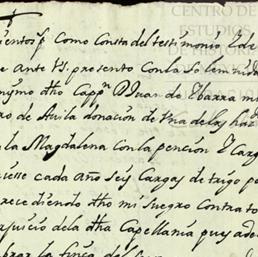 CENTRO DE
ESTUDIOS
mientos pº Como Consta del testimonio
e ante Vs. presento Con la Solemnidad
nymo dho Cappn Dn Juan de Ybarra mi
ro de Avila donación de Una de las haz
la Magdalena Con la pencion
cada año Seis Cargas de trigo
reciendo dho mi Suegro Contra
juicio de la dha Capellanía pues
la finca